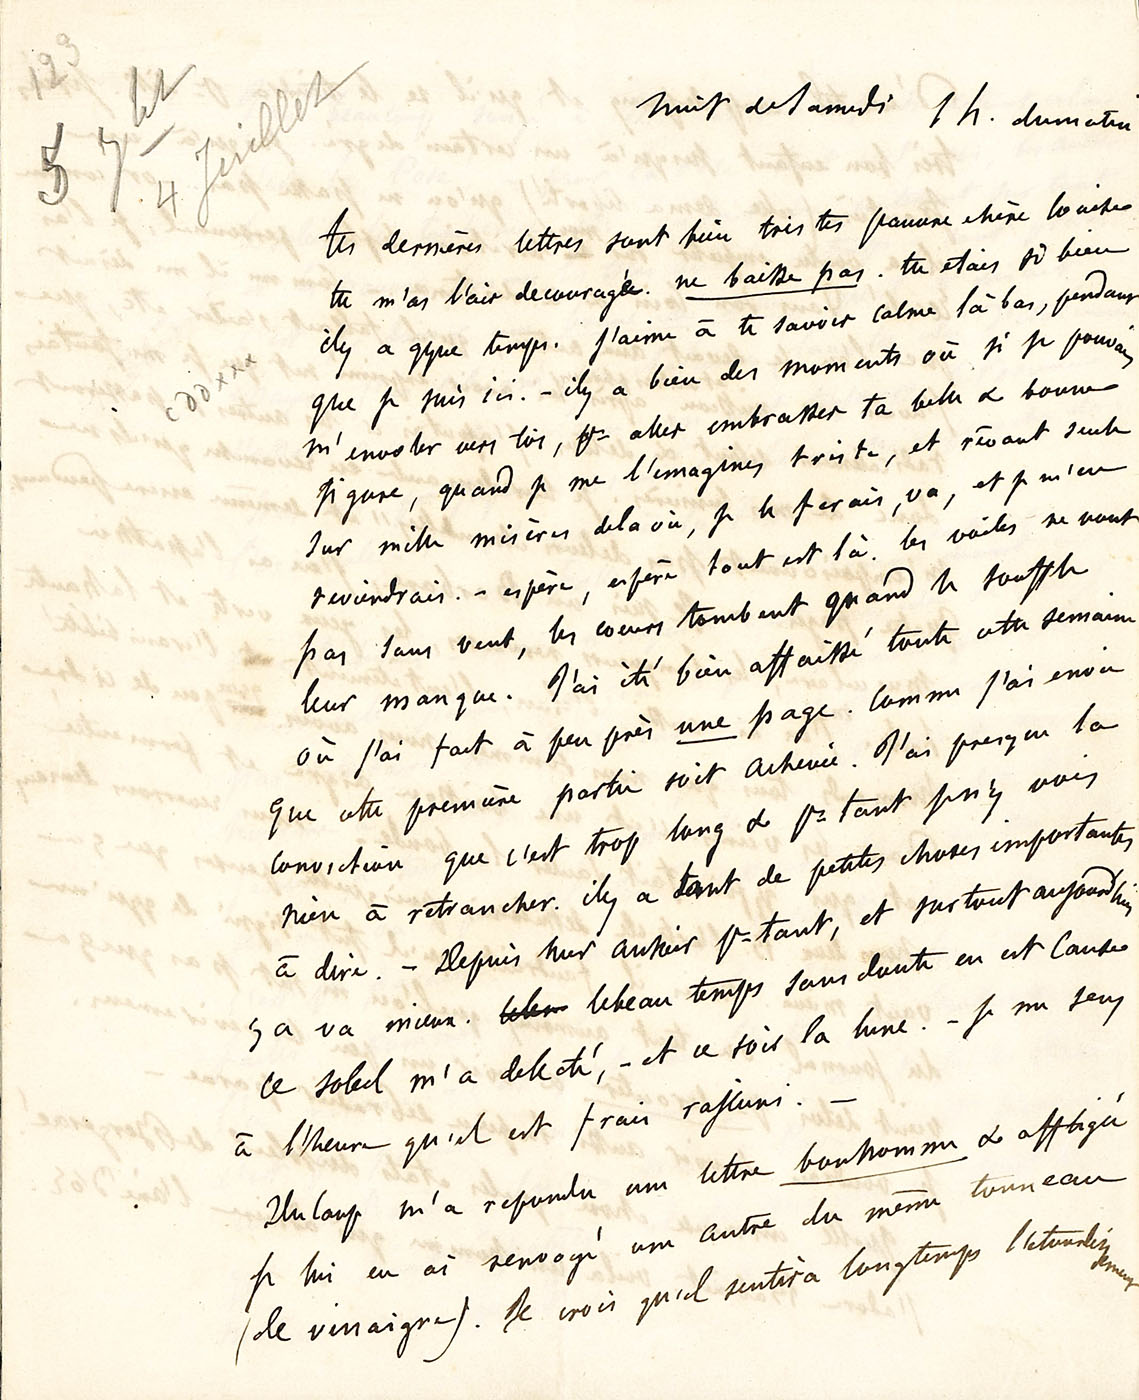 123
5 7bre
4 Juillet
nuit de Samedi 1 h. du matin
tes dernières lettres sont bien tristes pauvre chère Louise
tu m'as l'air decouragée. ne baisse pas. tu etais si bien
il y a qque temps. j'aime à te savoir calme là bas, pendant
que je suis ici. – il y a bien des moments où si je pouvais
m'envoler vers toi, pr aller embrasser ta belle & bonne
figure, quand je me l'imagines triste, et rêvant seule
sur mille misères de la vie, je le ferais, va, et je m'en
reviendrais. – espère, espère tout est là. les voiles ne vont
pas sans vent, les coeurs tombent quand le souffle
leur manque. J'ai été bien affaissé toute cette semaine
où j'ai fait à peu près une page. Comme j'ai envie
que cette première partie soit achevée. J'ai presque la
conviction que c'est trop long & pr tant je n'y vois
rien à retrancher. il y a tant de petites choses importantes
à dire. – Depuis hier au soir pr tant, et surtout aujourd'hui
ça va mieux. le beau temps sans doute en est Cause
Ce soleil m'a delecté, – et ce soir la lune. – je me sens
à l'heure qu'il est frais rajeuni. –
Du Camp m'a repondu une lettre bonhomme & affligée
je lui en ai renvoyé une autre du même tonneau
(de vinaigre). Je crois qu'il sentira longtemps l'etourdissement